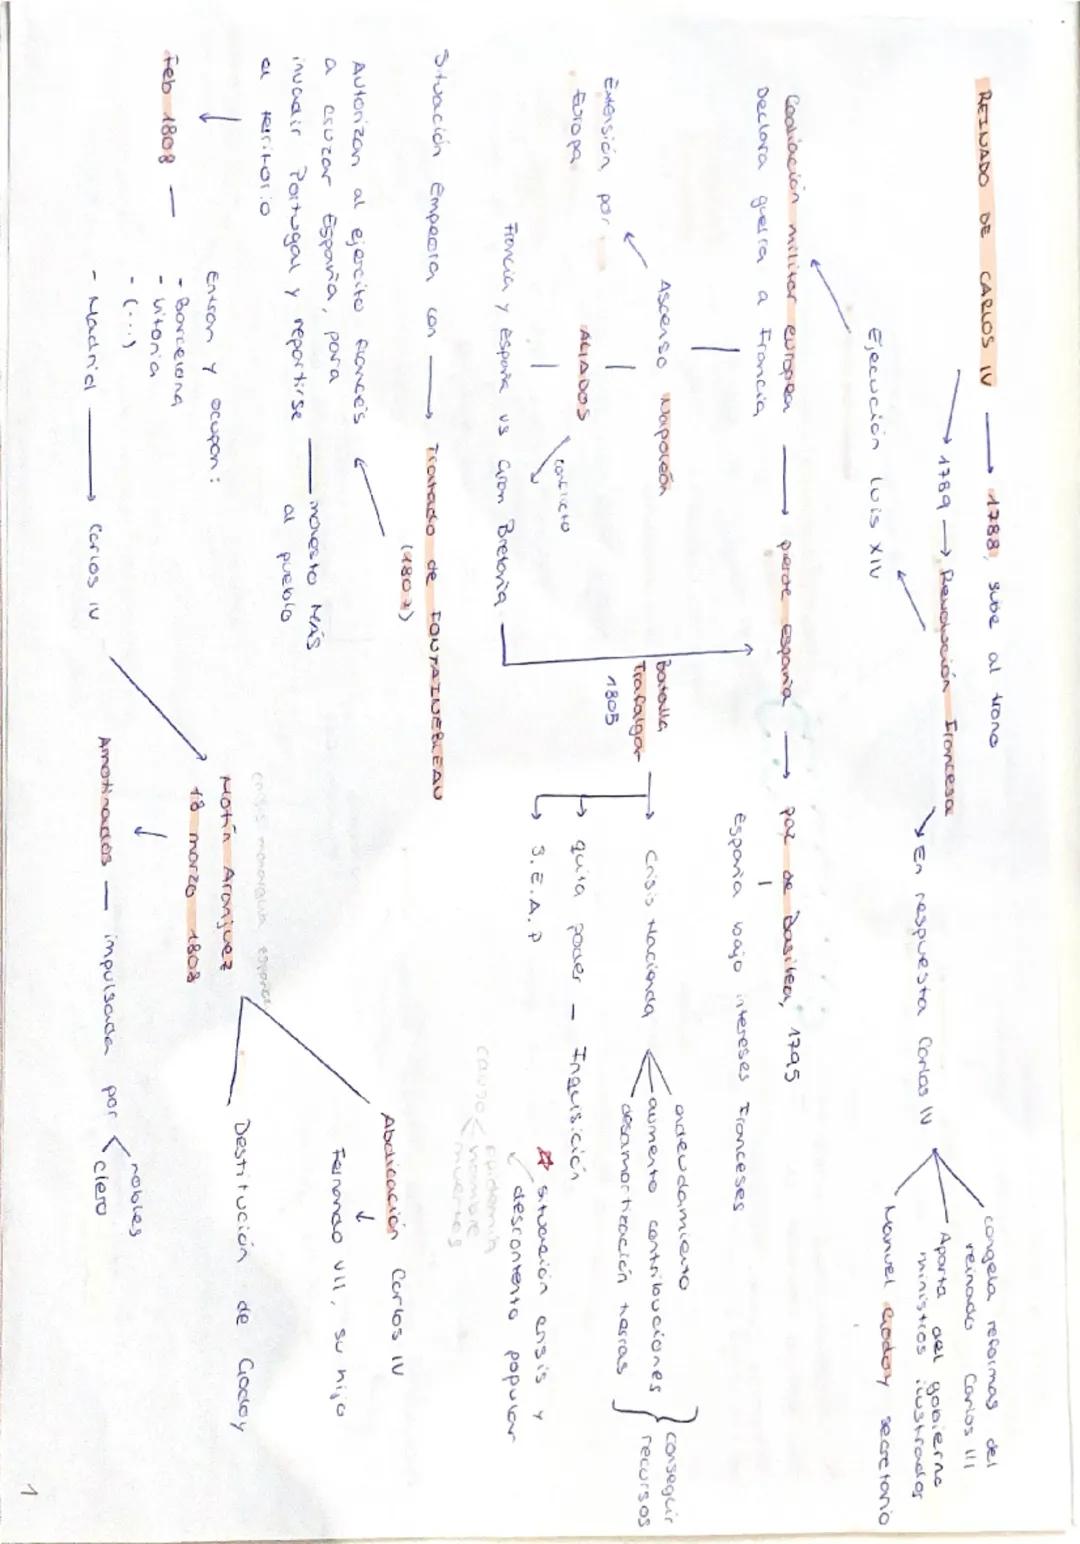 REINADO DE CARLOS IV → 1788, sube al trono
→ 1789 → Revolución Francesa
Ejecución Luis XIV
En respuesta Carlos IV
congela reformas del
reinado Carlos III
Aparta del gobierno
ministros ilustrados
Manuel Godoy secretario
Coalición militar europea → pierde España → paz de Basilea, 1795
Declara guerra a Francia
España bajo intereses Franceses
Ascenso Napoleón
Extensión por
Europa
ALIADOS
contexto
Francia y España vs Gran Bretaña
Batalla
Trafalgar
1805
→ Crisis Hacienda
endeudamiento
aumento contribuciones
desamortización tierras
conseguir
recursos
→ quita poder - Inquisición
→ S.E.A.P
situación crisis y
descontento popular
causa
epidemia
hambre
muertes
Situación empeora con → Tratado de FONTAINEBLEAU
(1807)
Autorizan al ejercito francés
a cruzar España, para
invadir Portugal y repartirse
el territorio
molesto MÁS
al pueblo
Feb 1808 —
Entran y ocupan:
- Barcelona
- Vitoria
- (...)
- Madrid → Carlos IV
crisis monarquía española
Motín Aranjuez
18 marzo 1808
Abdicación Carlos IV
Fernando VII, su hijo
Destitución de Godoy
Amotinados — impulsada por
nobles
clero
1